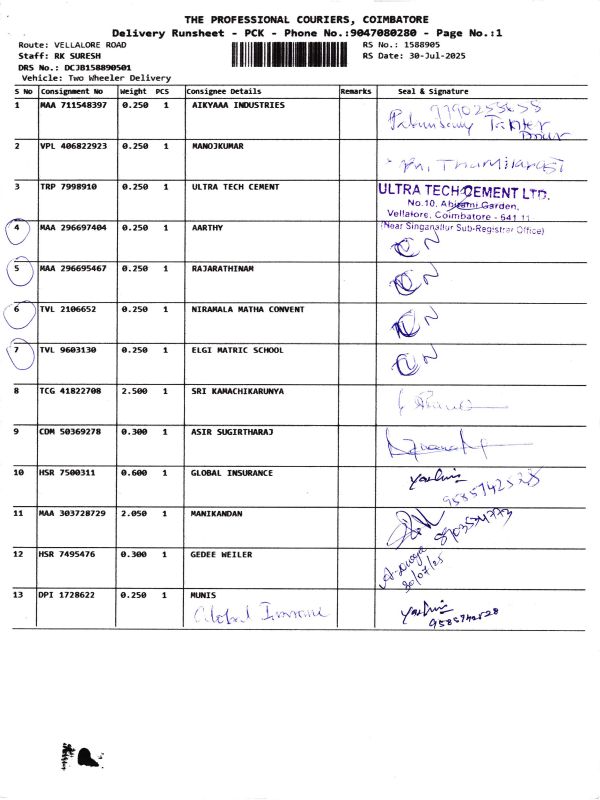 THE PROFESSIONAL COURIERS, COIMBATORE
Delivery Runsheet - PCK - Phone No.:9047080280 - Page No.:1
Route: VELLALORE ROAD RS No.: 1588905
Staff: RK SURESH RS Date: 30-Jul-2025
DRS No.: DCJB158890501
Vehicle: Two Wheeler Delivery
S No Consignment No Weight PCS Consignee Details Remarks Seal & Signature
1 MAA 711548397 0.250 1 AIKYAAA INDUSTRIES
2 VPL 406822923 0.250 1 MANOJKUMAR
3 TRP 7998910 0.250 1 ULTRA TECH CEMENT ULTRA TECH CEMENT LTD.
No.10, Abirami Garden,
Vellalore, Coimbatore - 641 11
(Near Singanallur Sub-Registrar Office)
4 MAA 296697404 0.250 1 AARTHY
5 MAA 296695467 0.250 1 RAJARATHINAM
6 TVL 2106652 0.250 1 NIRAMALA MATHA CONVENT
7 TVL 9603130 0.250 1 ELGI MATRIC SCHOOL
8 TCG 41822708 2.500 1 SRI KAMACHIKARUNYA
9 CDM 50369278 0.300 1 ASIR SUGIRTHARAJ
10 HSR 7500311 0.600 1 GLOBAL INSURANCE
9585742528
11 MAA 303728729 2.050 1 MANIKANDAN
12 HSR 7495476 0.300 1 GEDEE WEILER
30/07/25
13 DPI 1728622 0.250 1 MUNIS
9585742528